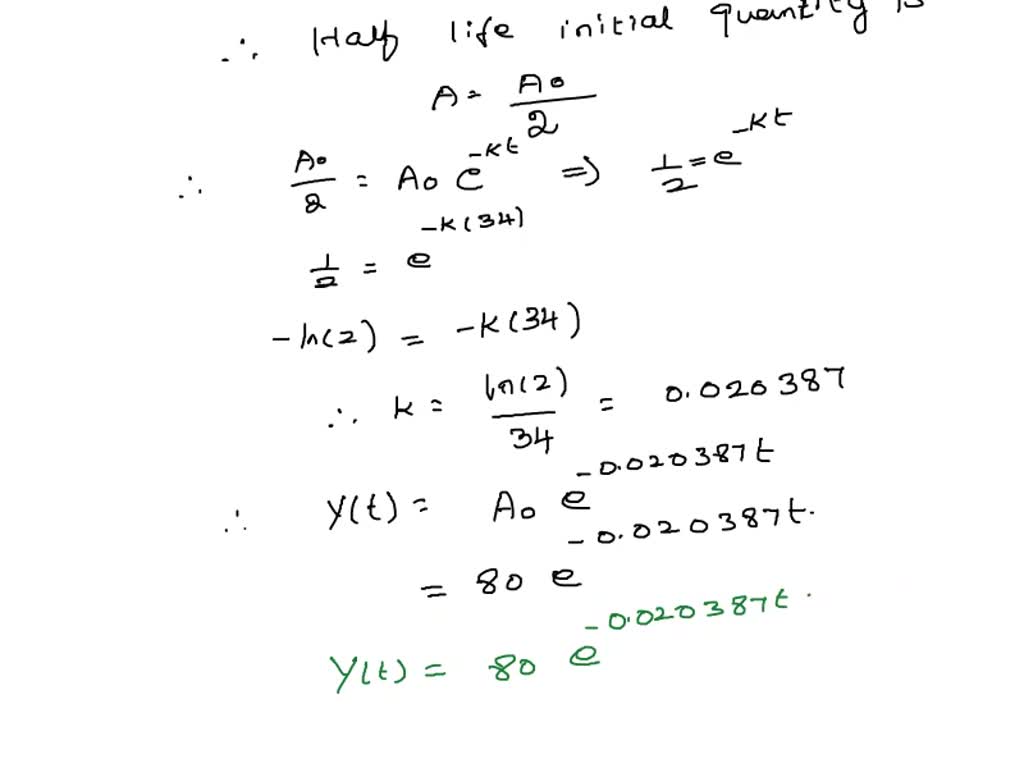 ∴ Half life initial quantity is
A = A0/2
∴ A0/2 = A0 e^-kt => 1/2 = e^-kt
1/2 = e^-k(34)
-ln(2) = -k(34)
∴ k = ln(2)/34 = 0.020387
∴ Y(t) = A0 e^-0.020387t
= 80 e^-0.020387t.
Y(t) = 80 e^-0.020387t.